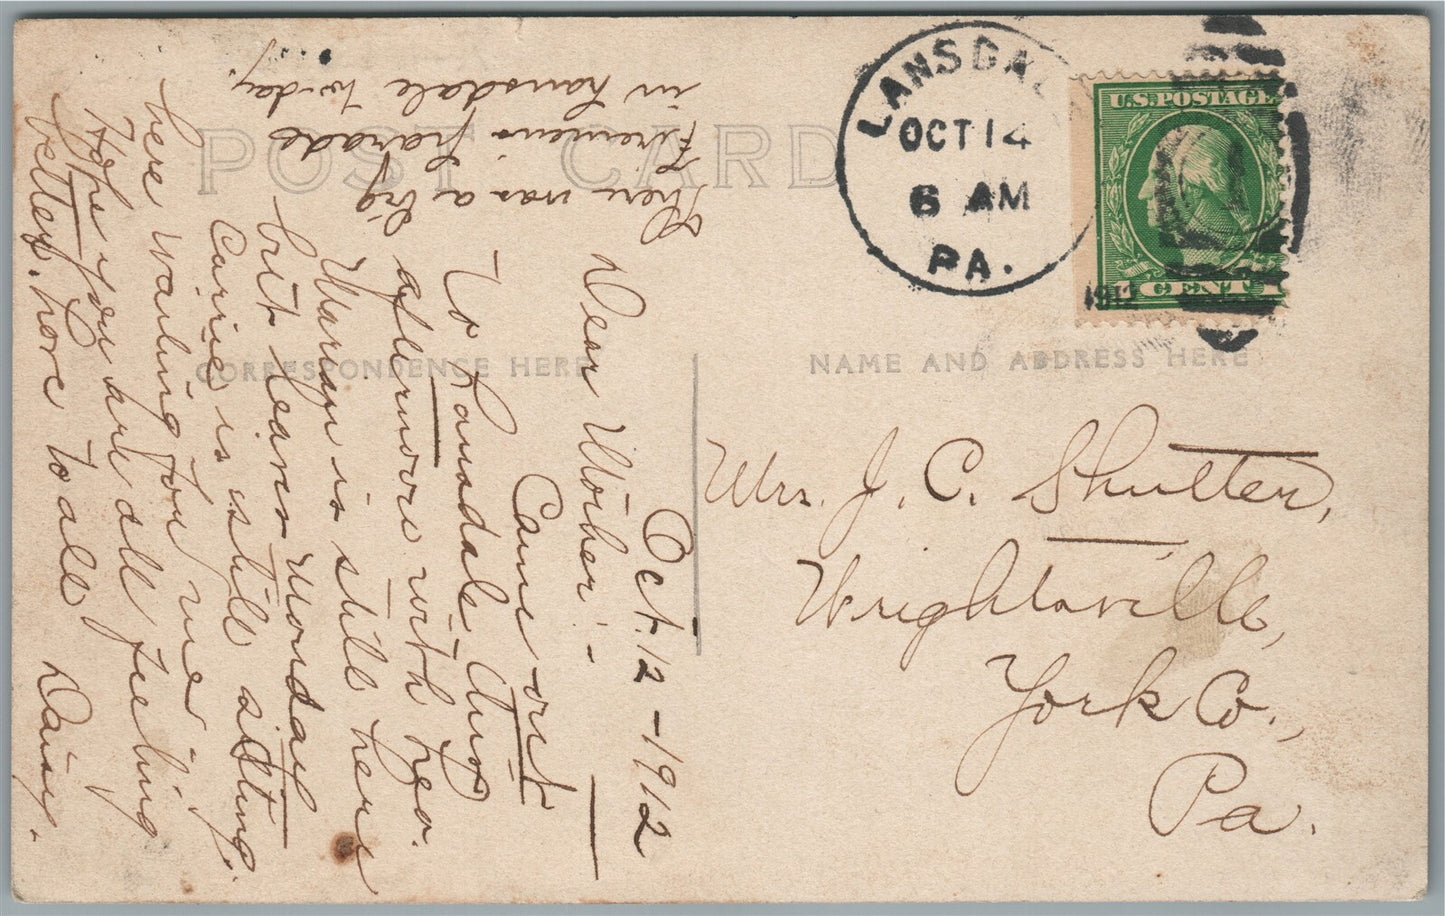 POST CARD
CORRESPONDENCE HERE
NAME AND ADDRESS HERE
LANSDA
OCT 14
6 AM
PA.
U.S. POSTAGE
1 CENT
Mrs. J. C. Shulter,
Wrightsville,
York Co.,
Pa.
Oct. 12 - 1912
Dear Mother: -
Came out
to Lansdale this
afternoon with Geo.
Maryan is still here
but leaves Monday
Carrie is still sitting
here waiting for me
Hope you are all feeling
better. Love to all
Daisy.
There was a big
Firemens parade
in Lansdale to-day.